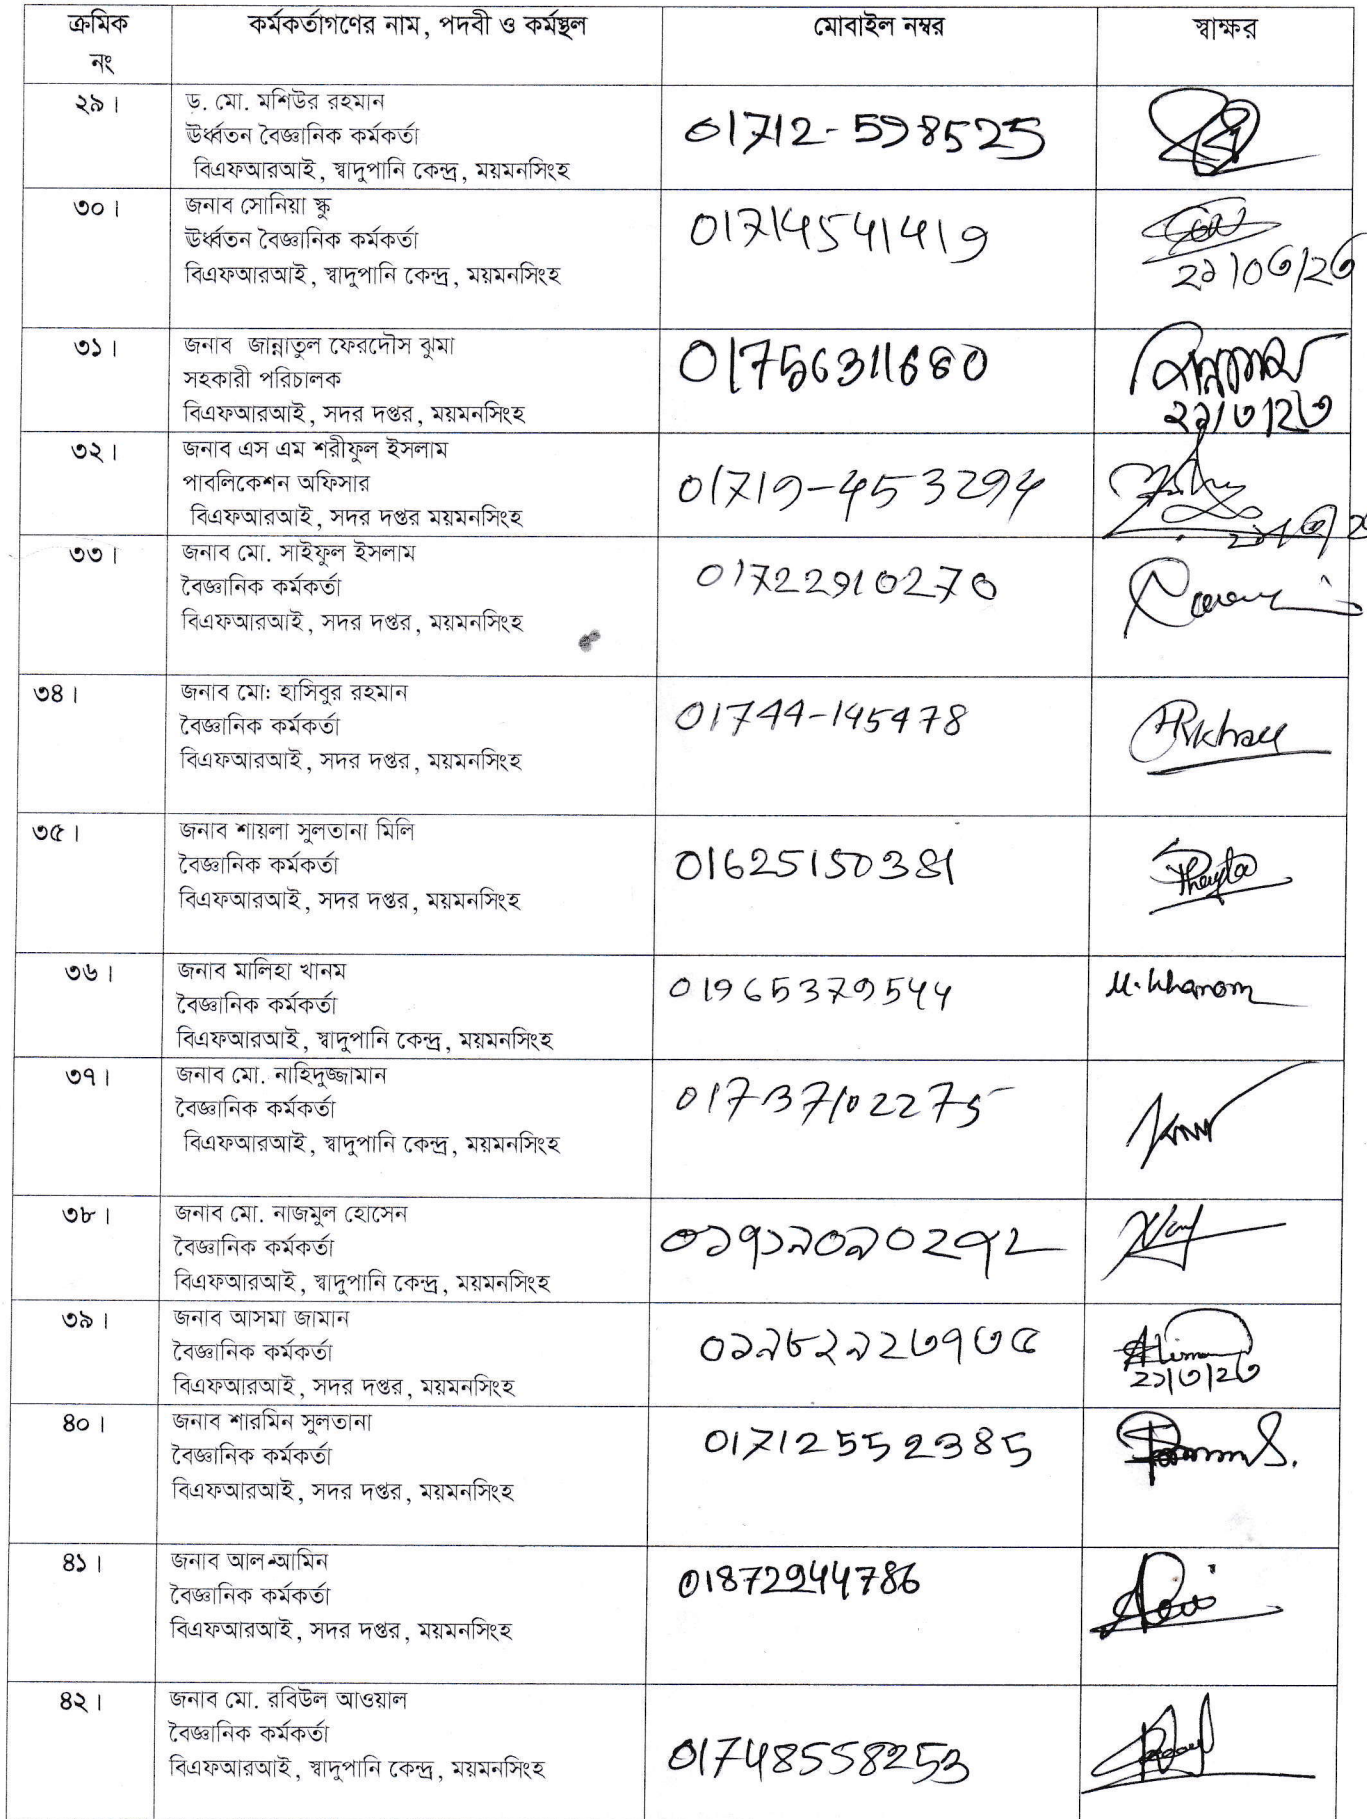 ক্রমিক নং কর্মকর্তাগণের নাম, পদবী ও কর্মস্থল মোবাইল নম্বর স্বাক্ষর
২৯। ড. মো. মশিউর রহমান
ঊর্ধ্বতন বৈজ্ঞানিক কর্মকর্তা
বিএফআরআই, স্বাদুপানি কেন্দ্র, ময়মনসিংহ
01712-598525
৩০। জনাব সোনিয়া স্কু
ঊর্ধ্বতন বৈজ্ঞানিক কর্মকর্তা
বিএফআরআই, স্বাদুপানি কেন্দ্র, ময়মনসিংহ
01714541419
২১/০৩/২৩
৩১। জনাব জান্নাতুল ফেরদৌস ঝুমা
সহকারী পরিচালক
বিএফআরআই, সদর দপ্তর, ময়মনসিংহ
01756311680
২১/৩/২৩
৩২। জনাব এস এম শরীফুল ইসলাম
পাবলিকেশন অফিসার
বিএফআরআই, সদর দপ্তর ময়মনসিংহ
01719-453294
৩৩। জনাব মো. সাইফুল ইসলাম
বৈজ্ঞানিক কর্মকর্তা
বিএফআরআই, সদর দপ্তর, ময়মনসিংহ
01722910270
৩৪। জনাব মোঃ হাসিবুর রহমান
বৈজ্ঞানিক কর্মকর্তা
বিএফআরআই, সদর দপ্তর, ময়মনসিংহ
01744-145478
৩৫। জনাব শায়লা সুলতানা মিলি
বৈজ্ঞানিক কর্মকর্তা
বিএফআরআই, সদর দপ্তর, ময়মনসিংহ
01625150381
৩৬। জনাব মালিহা খানম
বৈজ্ঞানিক কর্মকর্তা
বিএফআরআই, স্বাদুপানি কেন্দ্র, ময়মনসিংহ
01965379544
M. Khanom
৩৭। জনাব মো. নাহিদুজ্জামান
বৈজ্ঞানিক কর্মকর্তা
বিএফআরআই, স্বাদুপানি কেন্দ্র, ময়মনসিংহ
01737102275
৩৮। জনাব মো. নাজমুল হোসেন
বৈজ্ঞানিক কর্মকর্তা
বিএফআরআই, স্বাদুপানি কেন্দ্র, ময়মনসিংহ
০১৭১৯০৯০২৭২
৩৯। জনাব আসমা জামান
বৈজ্ঞানিক কর্মকর্তা
বিএফআরআই, সদর দপ্তর, ময়মনসিংহ
০১৯৮২৯২৩৭৩৫
২১/৩/২৩
৪০। জনাব শারমিন সুলতানা
বৈজ্ঞানিক কর্মকর্তা
বিএফআরআই, সদর দপ্তর, ময়মনসিংহ
01712552385
৪১। জনাব আল-আমিন
বৈজ্ঞানিক কর্মকর্তা
বিএফআরআই, সদর দপ্তর, ময়মনসিংহ
01872944786
৪২। জনাব মো. রবিউল আওয়াল
বৈজ্ঞানিক কর্মকর্তা
বিএফআরআই, স্বাদুপানি কেন্দ্র, ময়মনসিংহ
01748558253